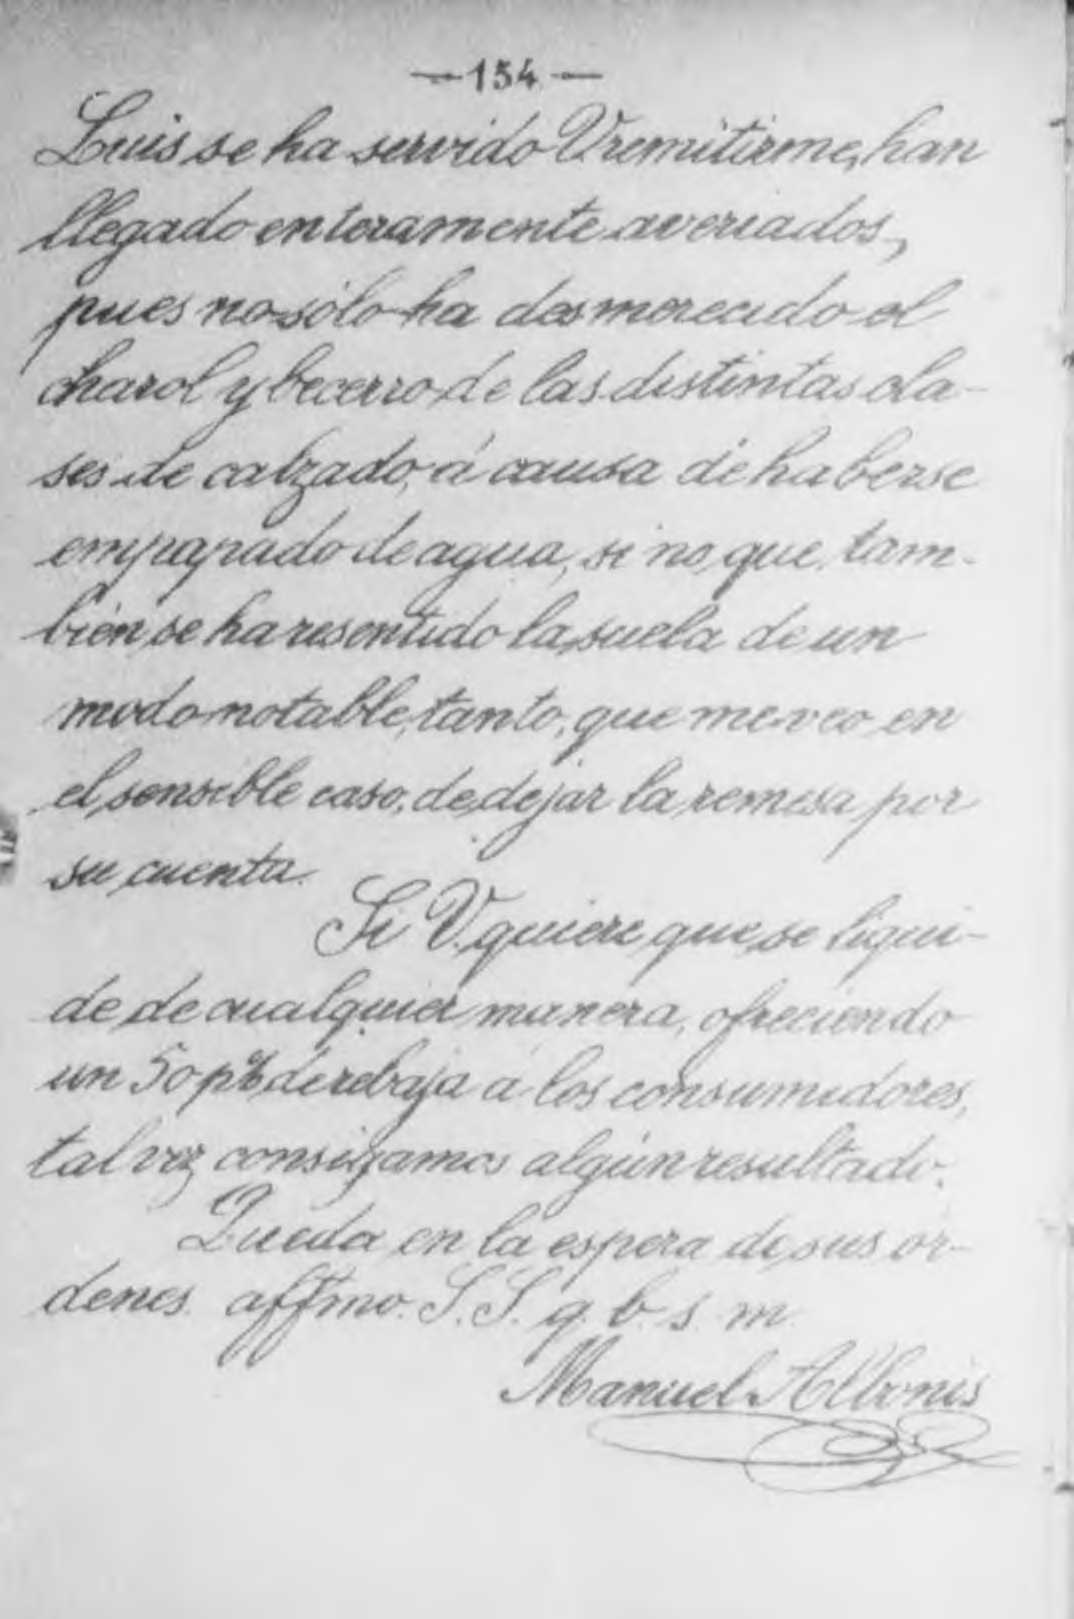 —154—
Luis se ha servido V. remitirme, han
llegado enteramente averiados,
pues no sólo ha desmerecido el
charol y becerro de las distintas cla-
ses de calzado, á causa de haberse
empapado de agua, si no que tam-
bién se ha resentido la suela de un
modo notable, tanto, que me veo en
el sensible caso, de dejar la remesa por
su cuenta.
Si V. quiere que se liqui-
de de cualquier manera, ofreciendo
un 50 p% de rebaja á los consumidores,
tal vez consigamos algún resultado.
Queda en la espera de sus ór-
denes affmo. S. S. q. b. s. m.
Manuel Albonis